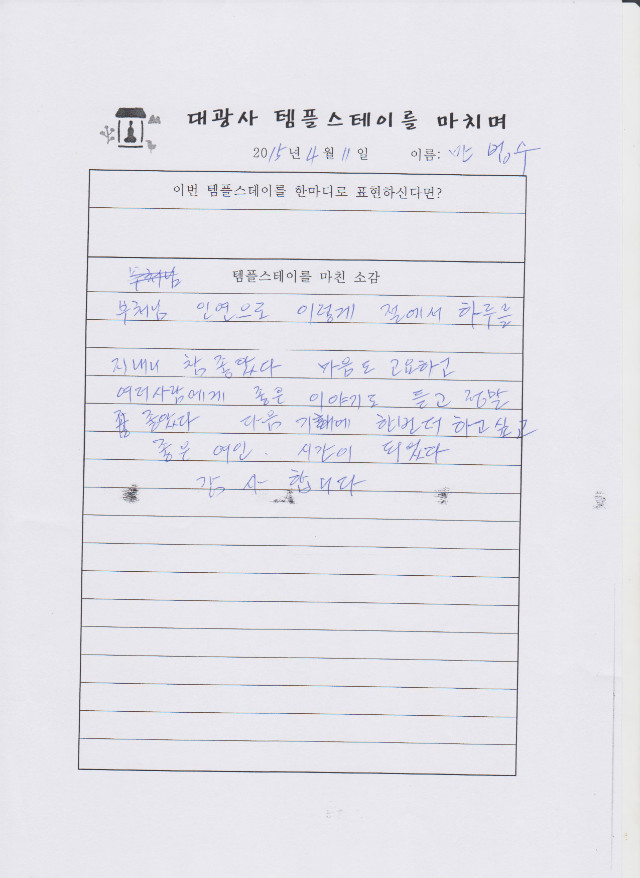 대광사 템플스테이를 마치며
2015년 4월 11일 이름: 범수
이번 템플스데이를 한마디로 표현하신다면?
부처님 템플스데이를 마친 소감
부처님 인연으로 이렇게 절에서 하루를
지내니 참 좋았다 마음도 고요하고
여러사람에게 좋은 이야기도 듣고 정말
좋았다 다음 기회에 한번더 하고싶고
좋은 여인. 시간이 되었다
감사합니다